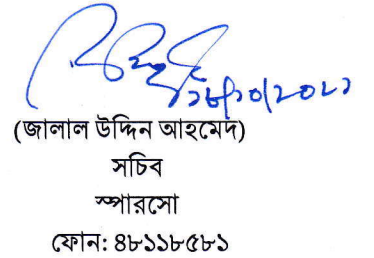 ২৮/১০/২০২১
(জালাল উদ্দিন আহমেদ)
সচিব
স্পারসো
ফোন: ৪৮১১৮৫৮১